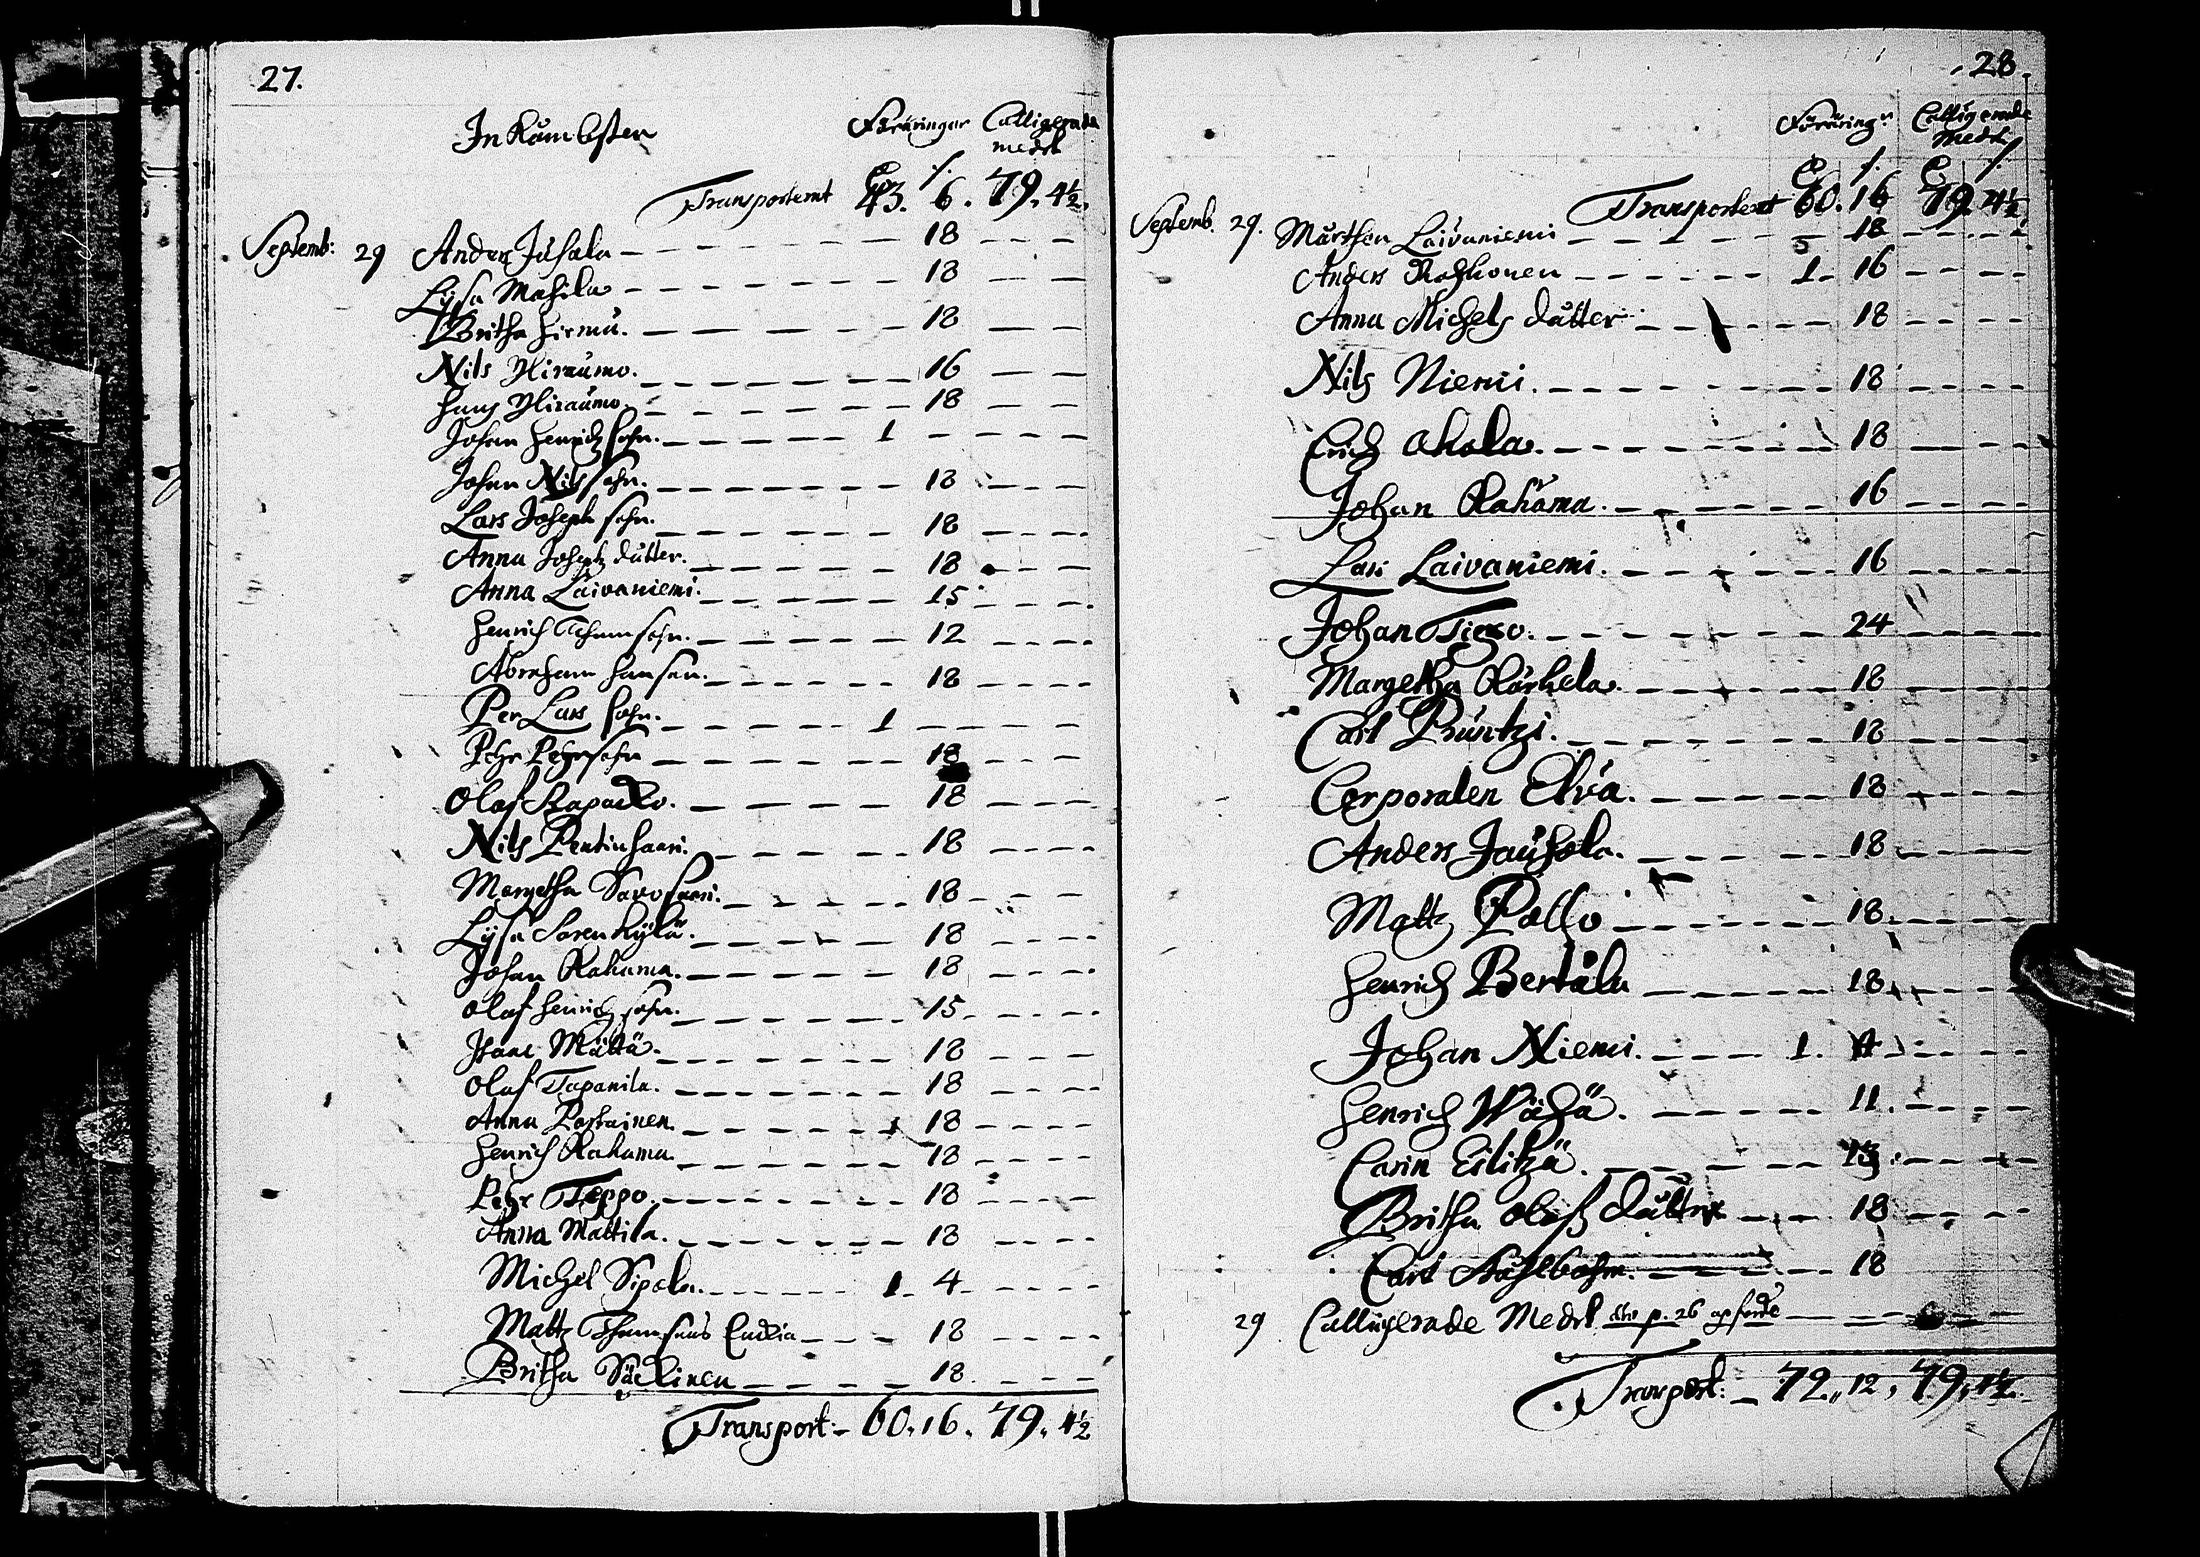 27.
Inkåmbsten Föräringar Colligerade
medel
Transportemt 43. 6. 79. 4½.
Septemb: 29 Anders Jusala 18
Lysa Mahila 18
Britha Hirmu. 18
Nils Yliraumo. 16
Hans Yliraumo. 18
Johan Henrichsohn. 1
Johan Nilssohn. 18
Lars Joseph sohn. 18
Anna Josephz dutter. 18
Anna Laivaniemi. 15
Henrich sohn. 12
Abraham Hansson. 18
Per Lars sohn. 1
Pehr Pehrsohn 18
Olof 18
Nils Pentinsaari. 18
Margetha Savosaari. 18
Lysa Sorenkylä. 18
Johan Rahuma. 18
Olof Henrichsohn. 15
Isaac Mättä. 18
Olof Tapanila. 18
Anna Partainen. 18
Henrich Rahuma 18
Pehr Teppo. 18
Anna Mattila. 18
Michel Sipola. 1 4
Mattz Thomsons Enckia 18
Britha Säckinen 18.
Transport: 60. 16. 79. 4½
28.
Föräring:r Colligerade
Medel
Transportemt 60. 16 79. 4½
Septemb. 29. Mårthen Laivaniemi 18
Anders 1. 16
Anna Michels dutter 18
Nils Niemi. 18
Erich Ahola. 18
Johan Rahama. 16
Lars Laivaniemi. 16
Johan 24
Margetha Kärkela. 18
Carl Pruntzi. 18
Corporalen Elva. 18
Anders Jauhola. 18
Mattz Pallo 18.
Henrich Bertala 18.
Johan Niemi. 1.
Henrich Wähä. 11.
Carin Eilitzä. 13.
Britha Olofz dutter 18
Carl Ståhlbohm. 18
29 Collligerade Medel p. 26
Transport: 72. 12, 79, 4½.